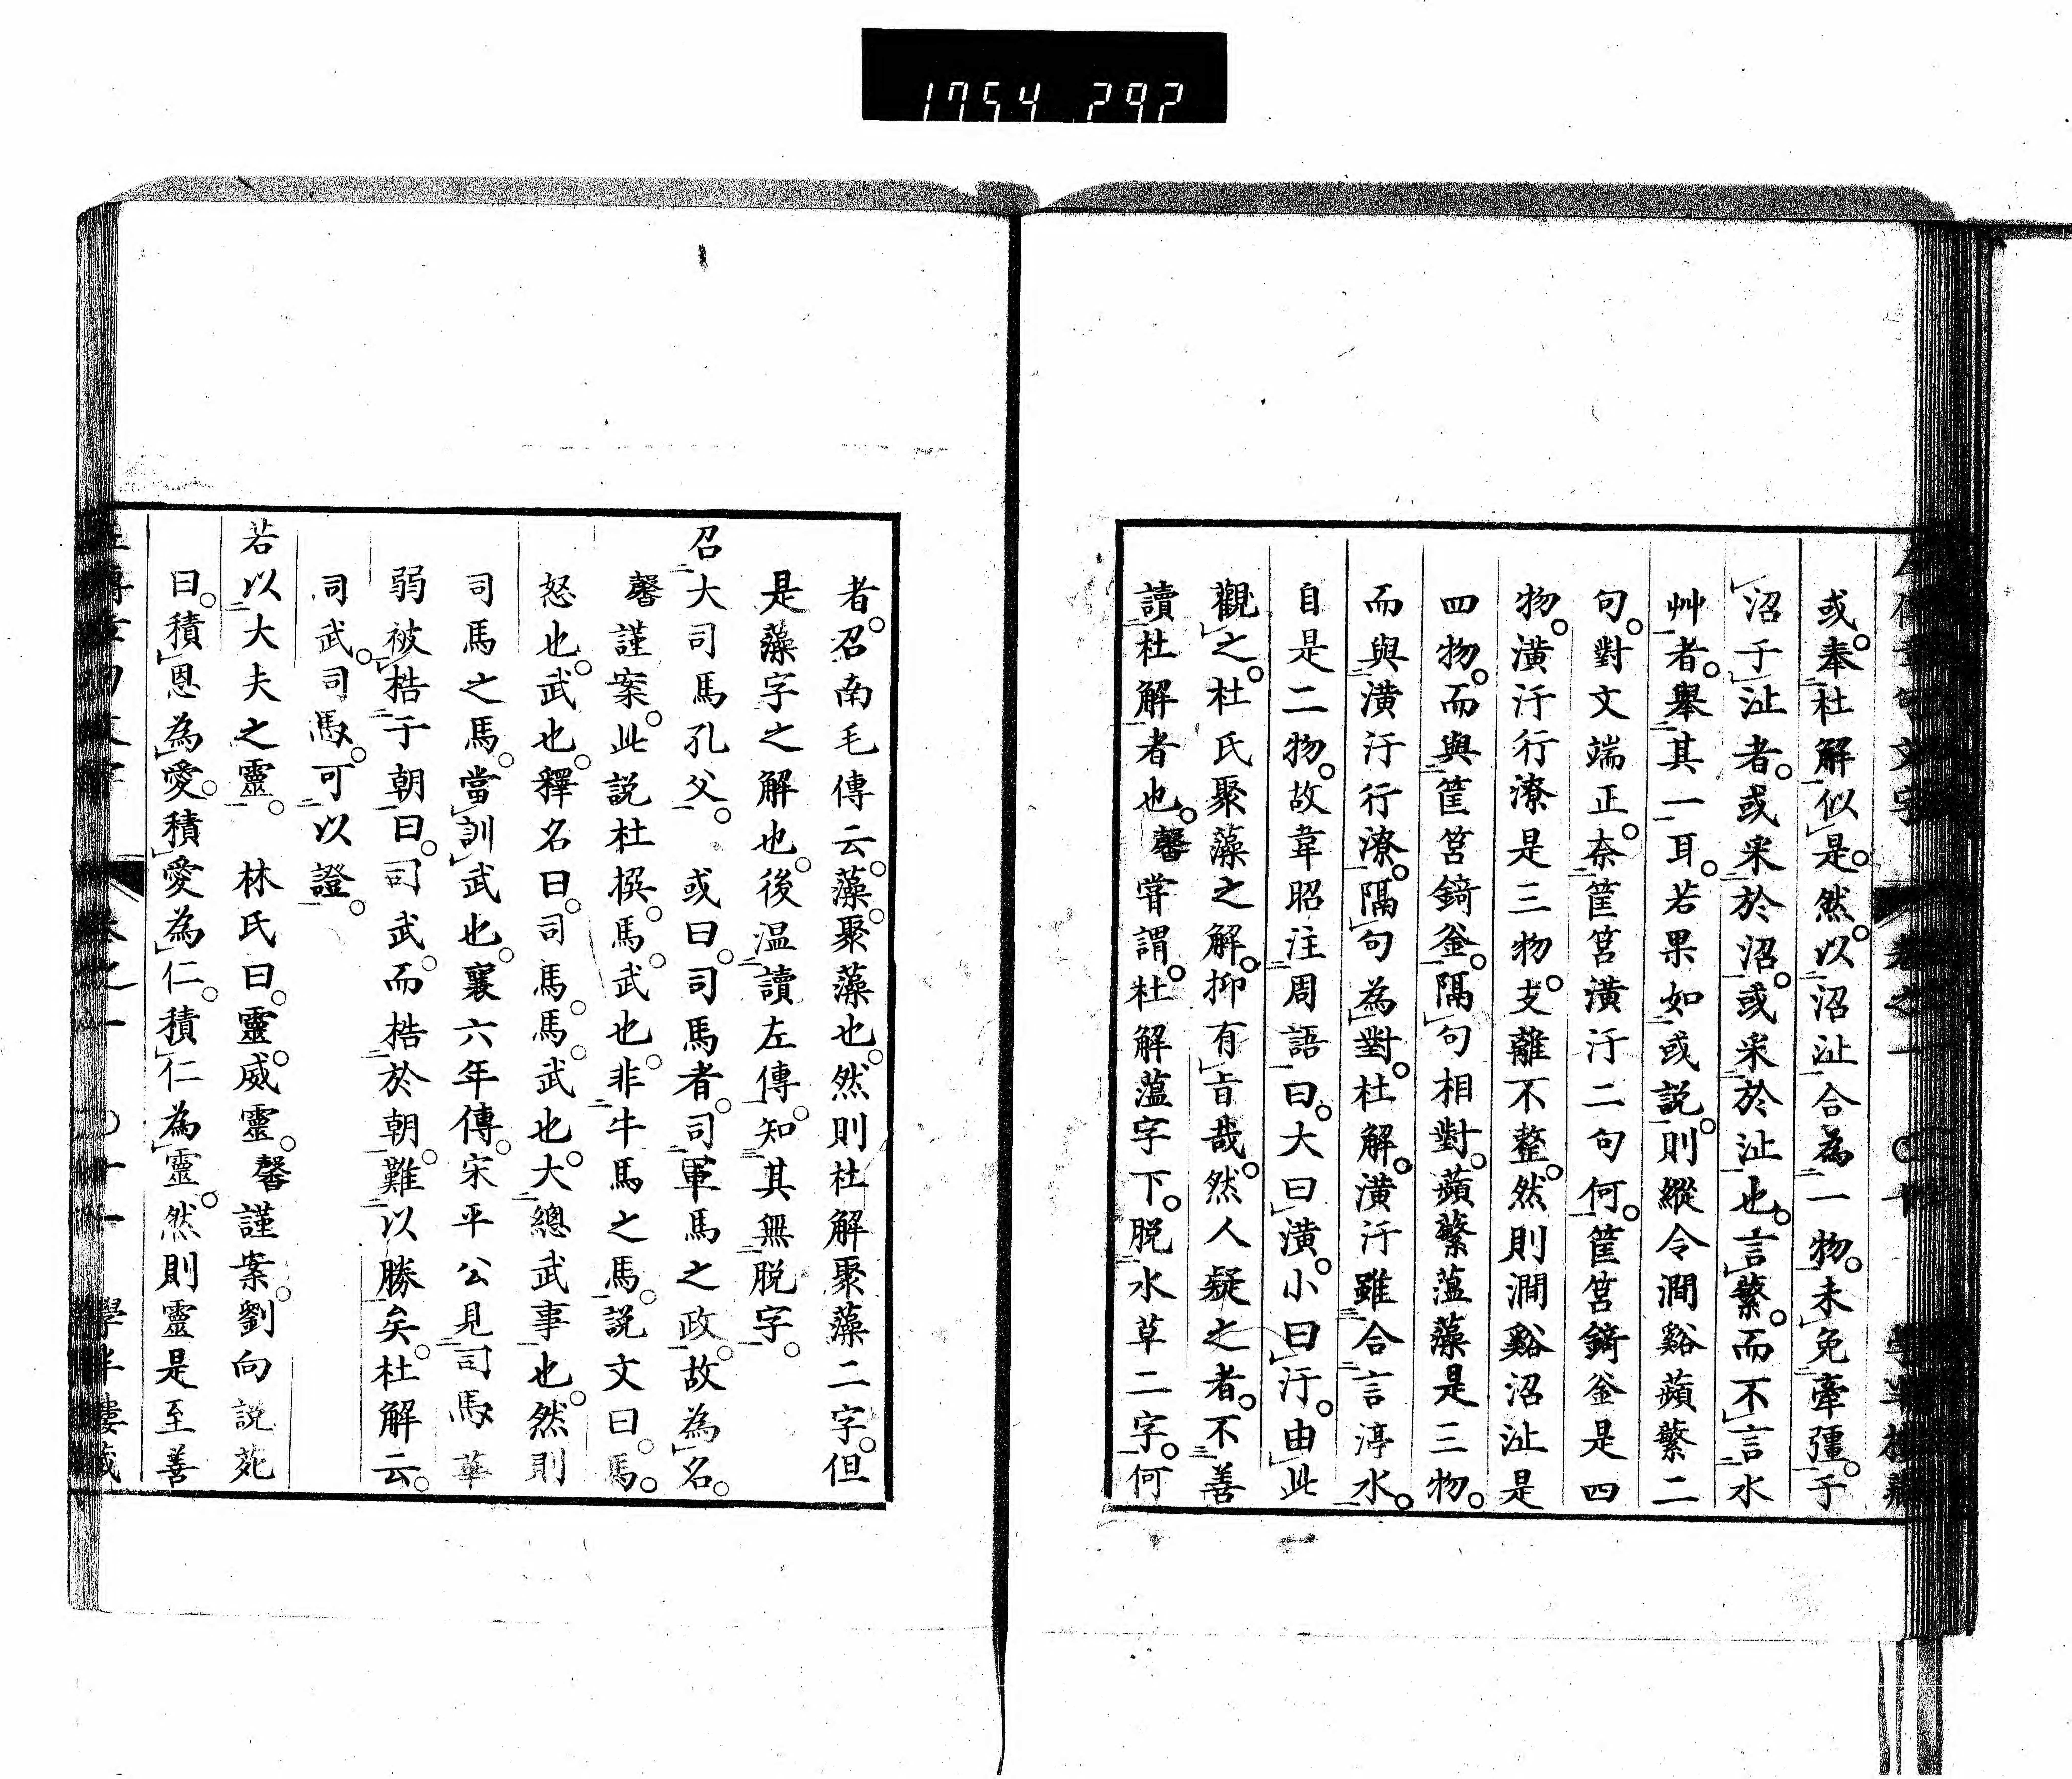 1754 292
或。奉杜解似是。然。以沼沚合為一物。未免牽彊。于
沼于沚者。或采於沼。或采於沚也。言蘩。而不言水
艸者。舉其一耳。若果如或説。則縱令澗谿蘋蘩二
句。對文端正。奈筐筥潢汙二句何。筐筥錡釜是四
物。潢汙行潦是三物。支離不整。然則澗谿沼沚是
四物。而與筐筥錡釜。隔句相對。蘋蘩薀藻是三物。
而與潢汙行潦。隔句為對。杜解。潢汙雖合言渟水。
自是二物。故韋昭注周語曰。大曰潢。小曰汙。由此
觀之。杜氏聚藻之解。抑有旨哉。然人疑之者。不善
讀杜解者也。馨嘗謂。杜解薀字下。脱水草二字。何
者。召南毛傳云。藻。聚藻也。然則杜解聚藻二字。但
是藻字之解也。後温讀左傳。知其無脱字。
召大司馬孔父。 或曰。司馬者。司軍馬之政。故為名。
馨謹案。此説杜撰。馬。武也。非牛馬之馬。説文曰。馬。
怒也。武也。釋名曰。司馬。馬。武也。大總武事也。然則
司馬之馬。當訓武也。襄六年傳。宋平公見司馬華
弱被梏于朝。曰。司武。而梏於朝。難以勝矣。杜解云。
司武。司馬。可以證。
若以大夫之靈。 林氏曰。靈。威靈。馨謹案。劉向説苑
曰。積恩為愛。積愛為仁。積仁為靈。然則靈是至善
卷之一 〇十一